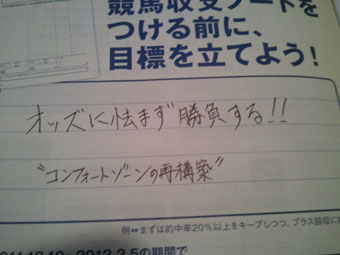 競馬収支ノートを
つける前に、
目標を立てよう!
オッズに怯まず勝負する!!
"コンフォートゾーンの再構築"
例▶▶まずは的中率20%以上をキープしつつ、プラス回収に
2012.2.5の期間で